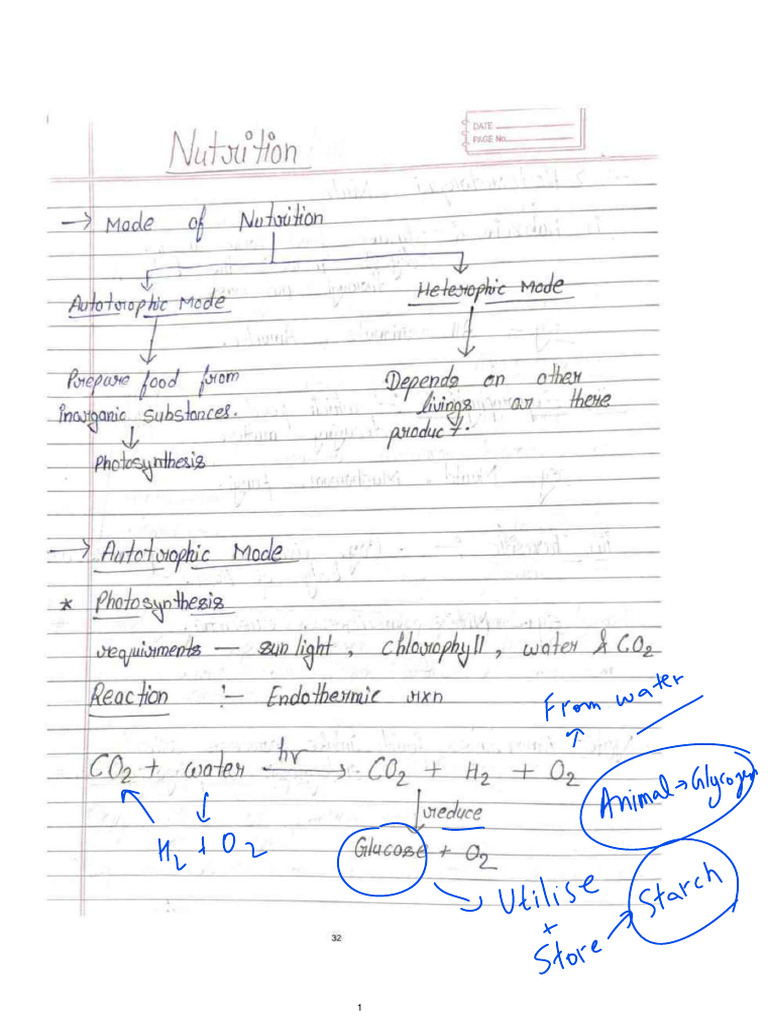 DATE
PAGE No.
Nutrition
→ Mode of Nutrition
Autotrophic Mode
Heterophic Mode
Prepare food from
inorganic substances.
Depends on other
livings or there
product.
Photosynthesis
→ Autotrophic Mode
* Photosynthesis
requirments — sunlight, chlorophyll, water & CO2
Reaction :- Endothermic rxn
From water
CO2 + water hv → CO2 + H2 + O2
Animal → Glycogen
H2 + O2
reduce
Glucose + O2
Utilise
+
Store → Starch
32
1